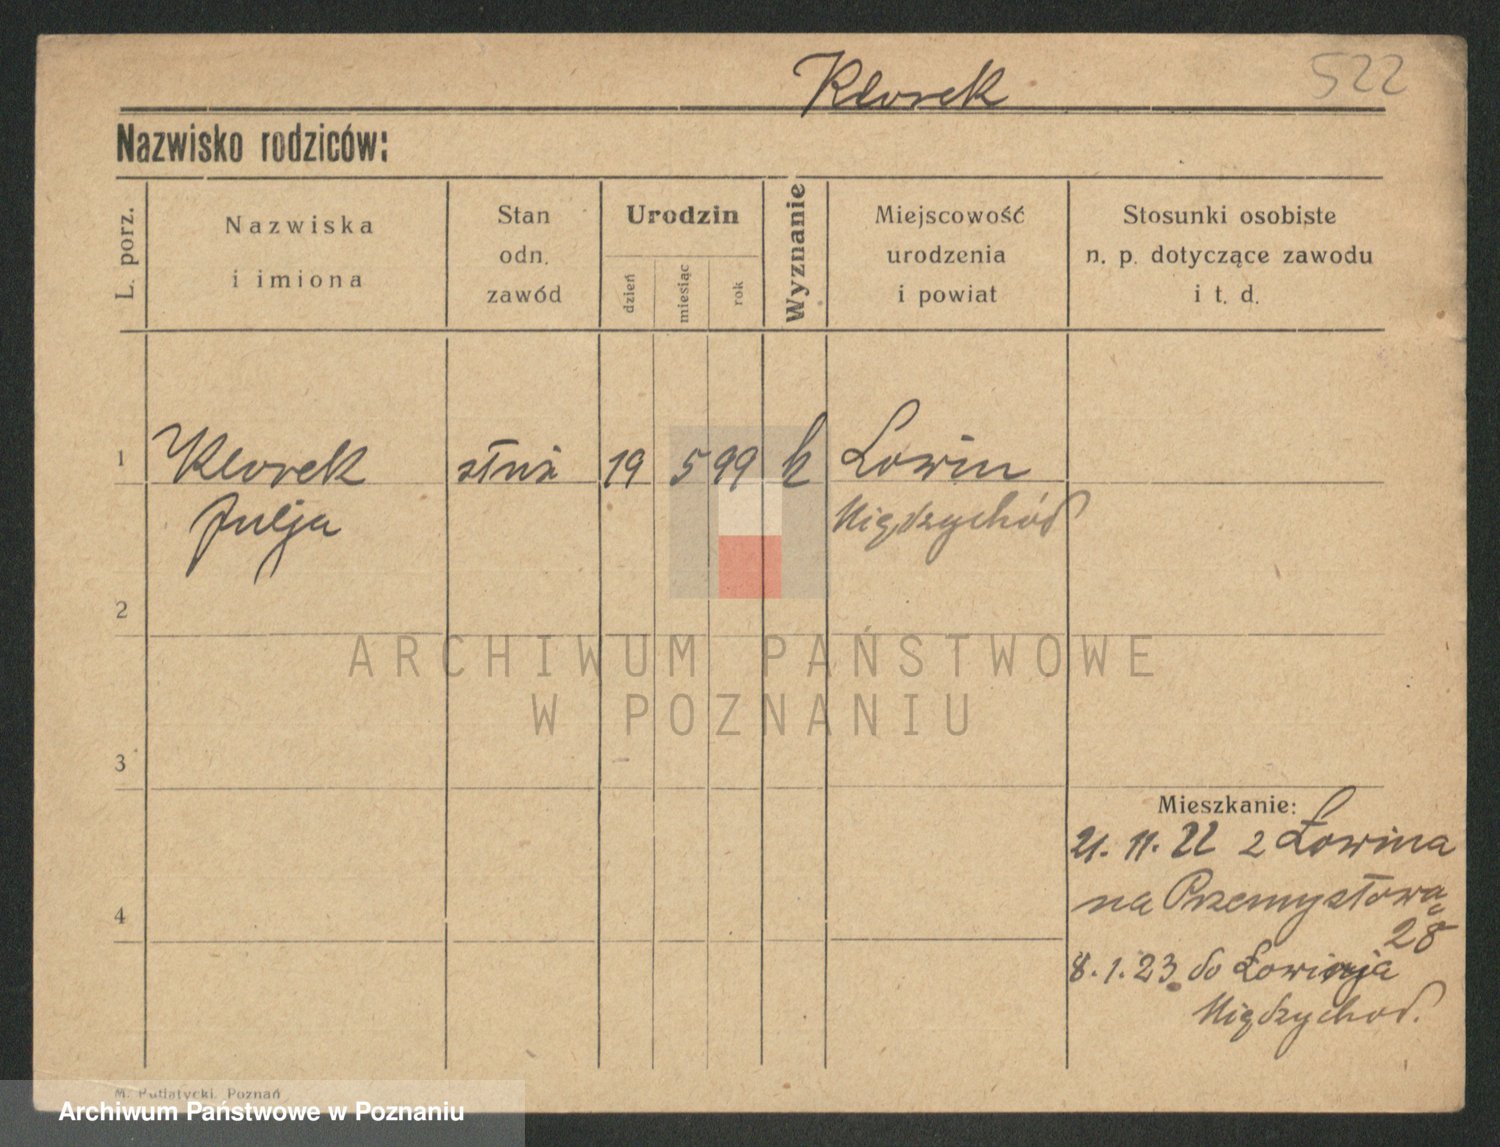 Klorek
522
Nazwisko rodziców:
L. porz.
Nazwiska
i imiona
Stan
odn.
zawód
Urodzin
dzień
miesiąc
rok
Wyznanie
Miejscowość
urodzenia
i powiat
Stosunki osobiste
n. p. dotyczące zawodu
i t. d.
1 Klorek służ 19 5 99 k Lowin
Julja Międzychód
2
ARCHIWUM PAŃSTWOWE
W POZNANIU
3
Mieszkanie:
21. 11. 22 z Łowina
na Przemysłową
28
4
8. 1. 23 do Łowinja
Międzychod.
M. Putiatycki, Poznań
Archiwum Państwowe w Poznaniu